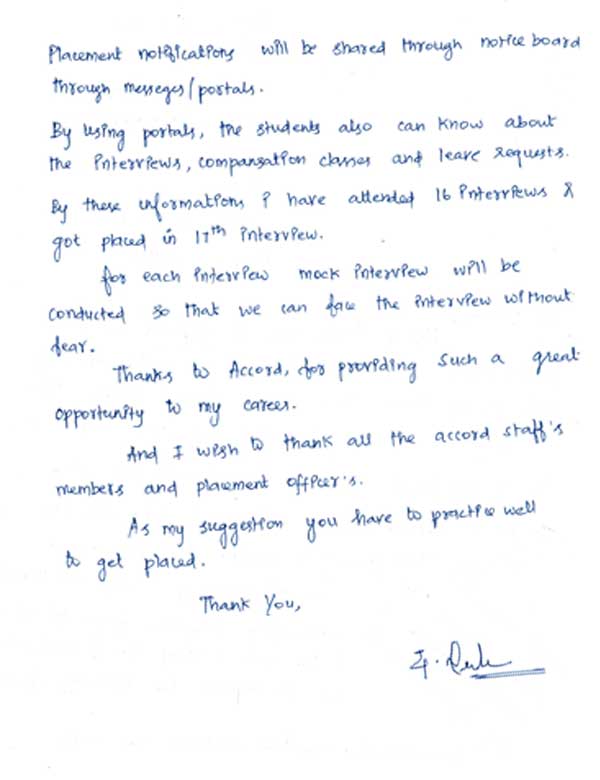 Placement notifications will be shared through notice board
through messeges/portals.
By using portals, the students also can know about
the interviews, compansation classes and leave requests.
By these informations i have attended 16 interviews &
got placed in 17th interview.
for each interview mock interview will be
conducted so that we can face the interview without
fear.
Thanks to Accord, for providing such a great
opportunity to my career.
And I wish to thank all the accord staff's
members and placement officer's.
As my suggestion you have to practice well
to get placed.
Thank You,